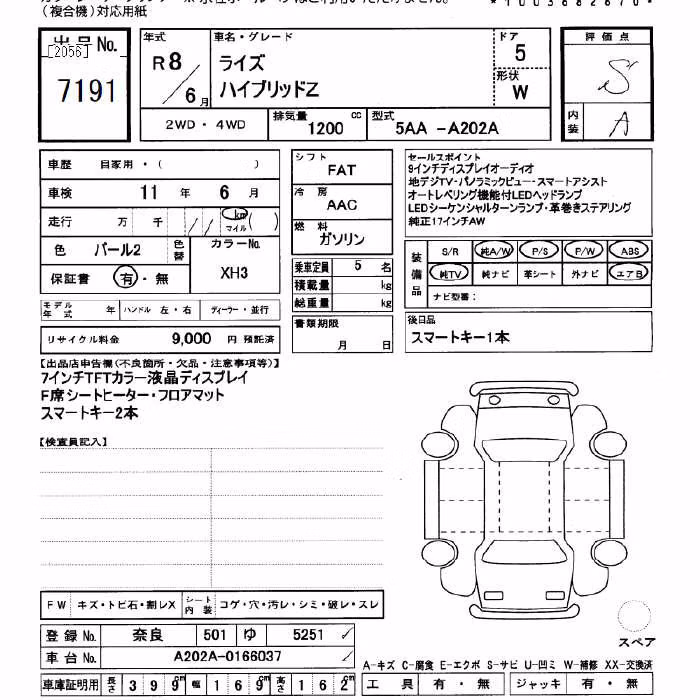 (複合機)対応用紙
*1003682670*
出品No.
[2056]
7191
年式
R8/6月
車名・グレード
ライズ
ハイブリッドZ
ドア
5
形状
W
評価点
S
内装
A
2WD・4WD
排気量
1200 cc
型式
5AA -A202A
車歴 自家用・( )
車検 11 年 6 月
走行 万 千 km マイル ( )
色 パール2 色替
カラーNo.
XH3
保証書 有・無
モデル年式 年 ハンドル 左・右 ディーラー・並行
リサイクル料金 9,000 円 預託済
シフト
FAT
冷房
AAC
燃料
ガソリン
乗車定員 5 名
積載量 kg
総重量 kg
書類期限
月 日
セールスポイント
9インチディスプレイオーディオ
地デジTV・パノラミックビュー・スマートアシスト
オートレベリング機能付LEDヘッドランプ
LEDシーケンシャルターンランプ・革巻きステアリング
純正17インチAW
装備品
S/R 純A/W P/S P/W ABS
純TV 純ナビ 革シート 外ナビ エアB
ナビ型番:
後日品
スマートキー1本
【出品店申告欄(不良箇所・欠品・注意事項等)】
7インチTFTカラー液晶ディスプレイ
F席シートヒーター・フロアマット
スマートキー2本
【検査員記入】
FW キズ・トビ石・割レX シート内装 コゲ・穴・汚レ・シミ・破レ・スレ
登録No. 奈良 501 ゆ 5251
車台No. A202A-0166037
車庫証明用 長さ 399cm 幅 169cm 高さ 162cm
スペア
A-キズ C-腐食 E-エクボ S-サビ U-凹ミ W-補修 XX-交換済
工具 有・無 ジャッキ 有・無